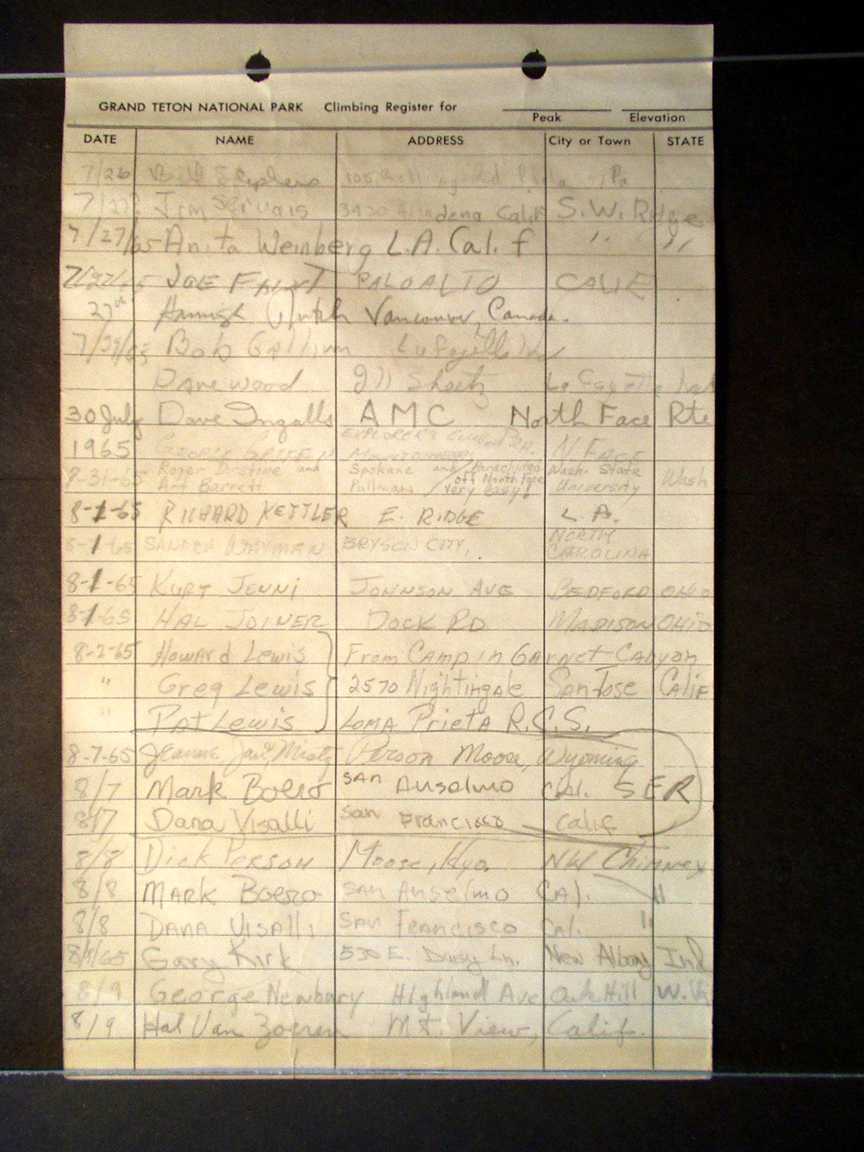 GRAND TETON NATIONAL PARK Climbing Register for
Peak Elevation
DATE NAME ADDRESS City or Town STATE
7/26 Bill Stephens Rd Pa
7/27 Jim Calif S.W. Ridge
7/27/65 Anita Weinberg L.A. Cal. f " " "
7/27/65 JOE PALO ALTO CALIF
27th Hamish Vancouver, Canada.
7/29/65 Bob Lafayette Ind
Dave Wood 211 Sheetz La Fayette Ind
30 July Dave Ingalls AMC North Face Rte
1965 GEORGE GRIFFEN EXPLORERS N. FACE
8-31-65 Roger and Spokane and Parachuted Wash. State Wash
Art Barrett Pullman / off North Face University
very easy!
8-1-65 RICHARD KETTLER E. RIDGE L.A.
8-1-65 SANDER WAYMAN BRYSON CITY, NORTH CAROLINA
8-1-65 KURT JENNI JOHNSON AVE BEDFORD OHIO
8-1-65 HAL JOINER DOCK RD MADISON OHIO
8-2-65 Howard Lewis From Camp in Garnet Canyon
" Greg Lewis 2570 Nightingale San Jose Calif
" Pat Lewis LOMA Prieta R.C.S.
8-7-65 Jeanne, Person Moose, Wyoming
8/7 Mark Boero San Anselmo Cal. SER
8/7 Dana Visalli San Francisco Calif
8/8 Dick PERSON Moose, Wyo. NW Chimney
8/8 MARK BOERO San Anselmo CAl. "
8/8 DANA VISAlli San Francisco Cal. "
8/9/65 Gary Kirk 530 E. Daisy Ln. New Albany Ind
8/9 George Newbary Highland Ave Oak Hill W. Va
8/9 Hal Van Zoeren Mt. View, Calif.